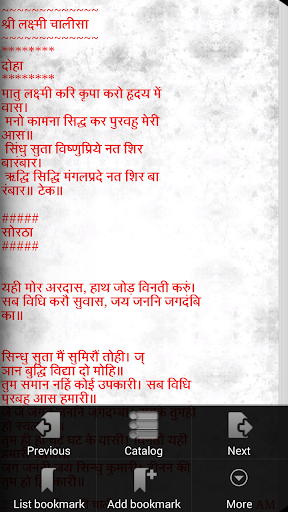 ~~~~~~~~~~~~~
श्री लक्ष्मी चालीसा
~~~~~~~~~~~~~
********
दोहा
********
मातु लक्ष्मी करि कृपा करो हृदय में
वास।
मनो कामना सिद्ध कर पुरवहु मेरी
आस॥
सिंधु सुता विष्णुप्रिये नत शिर
बारंबार।
ऋद्धि सिद्धि मंगलप्रदे नत शिर बा
रंबार॥ टेक॥
#####
सोरठा
#####
यही मोर अरदास, हाथ जोड़ विनती करुं।
सब विधि करौ सुवास, जय जननि जगदंबि
का॥
सिन्धु सुता मैं सुमिरौं तोही। ज्
ञान बुद्धि विद्या दो मोहि॥
तुम समान नहिं कोई उपकारी। सब विधि
पुरबहु आस हमारी॥
Previous
Catalog
Next
List bookmark
Add bookmark
More